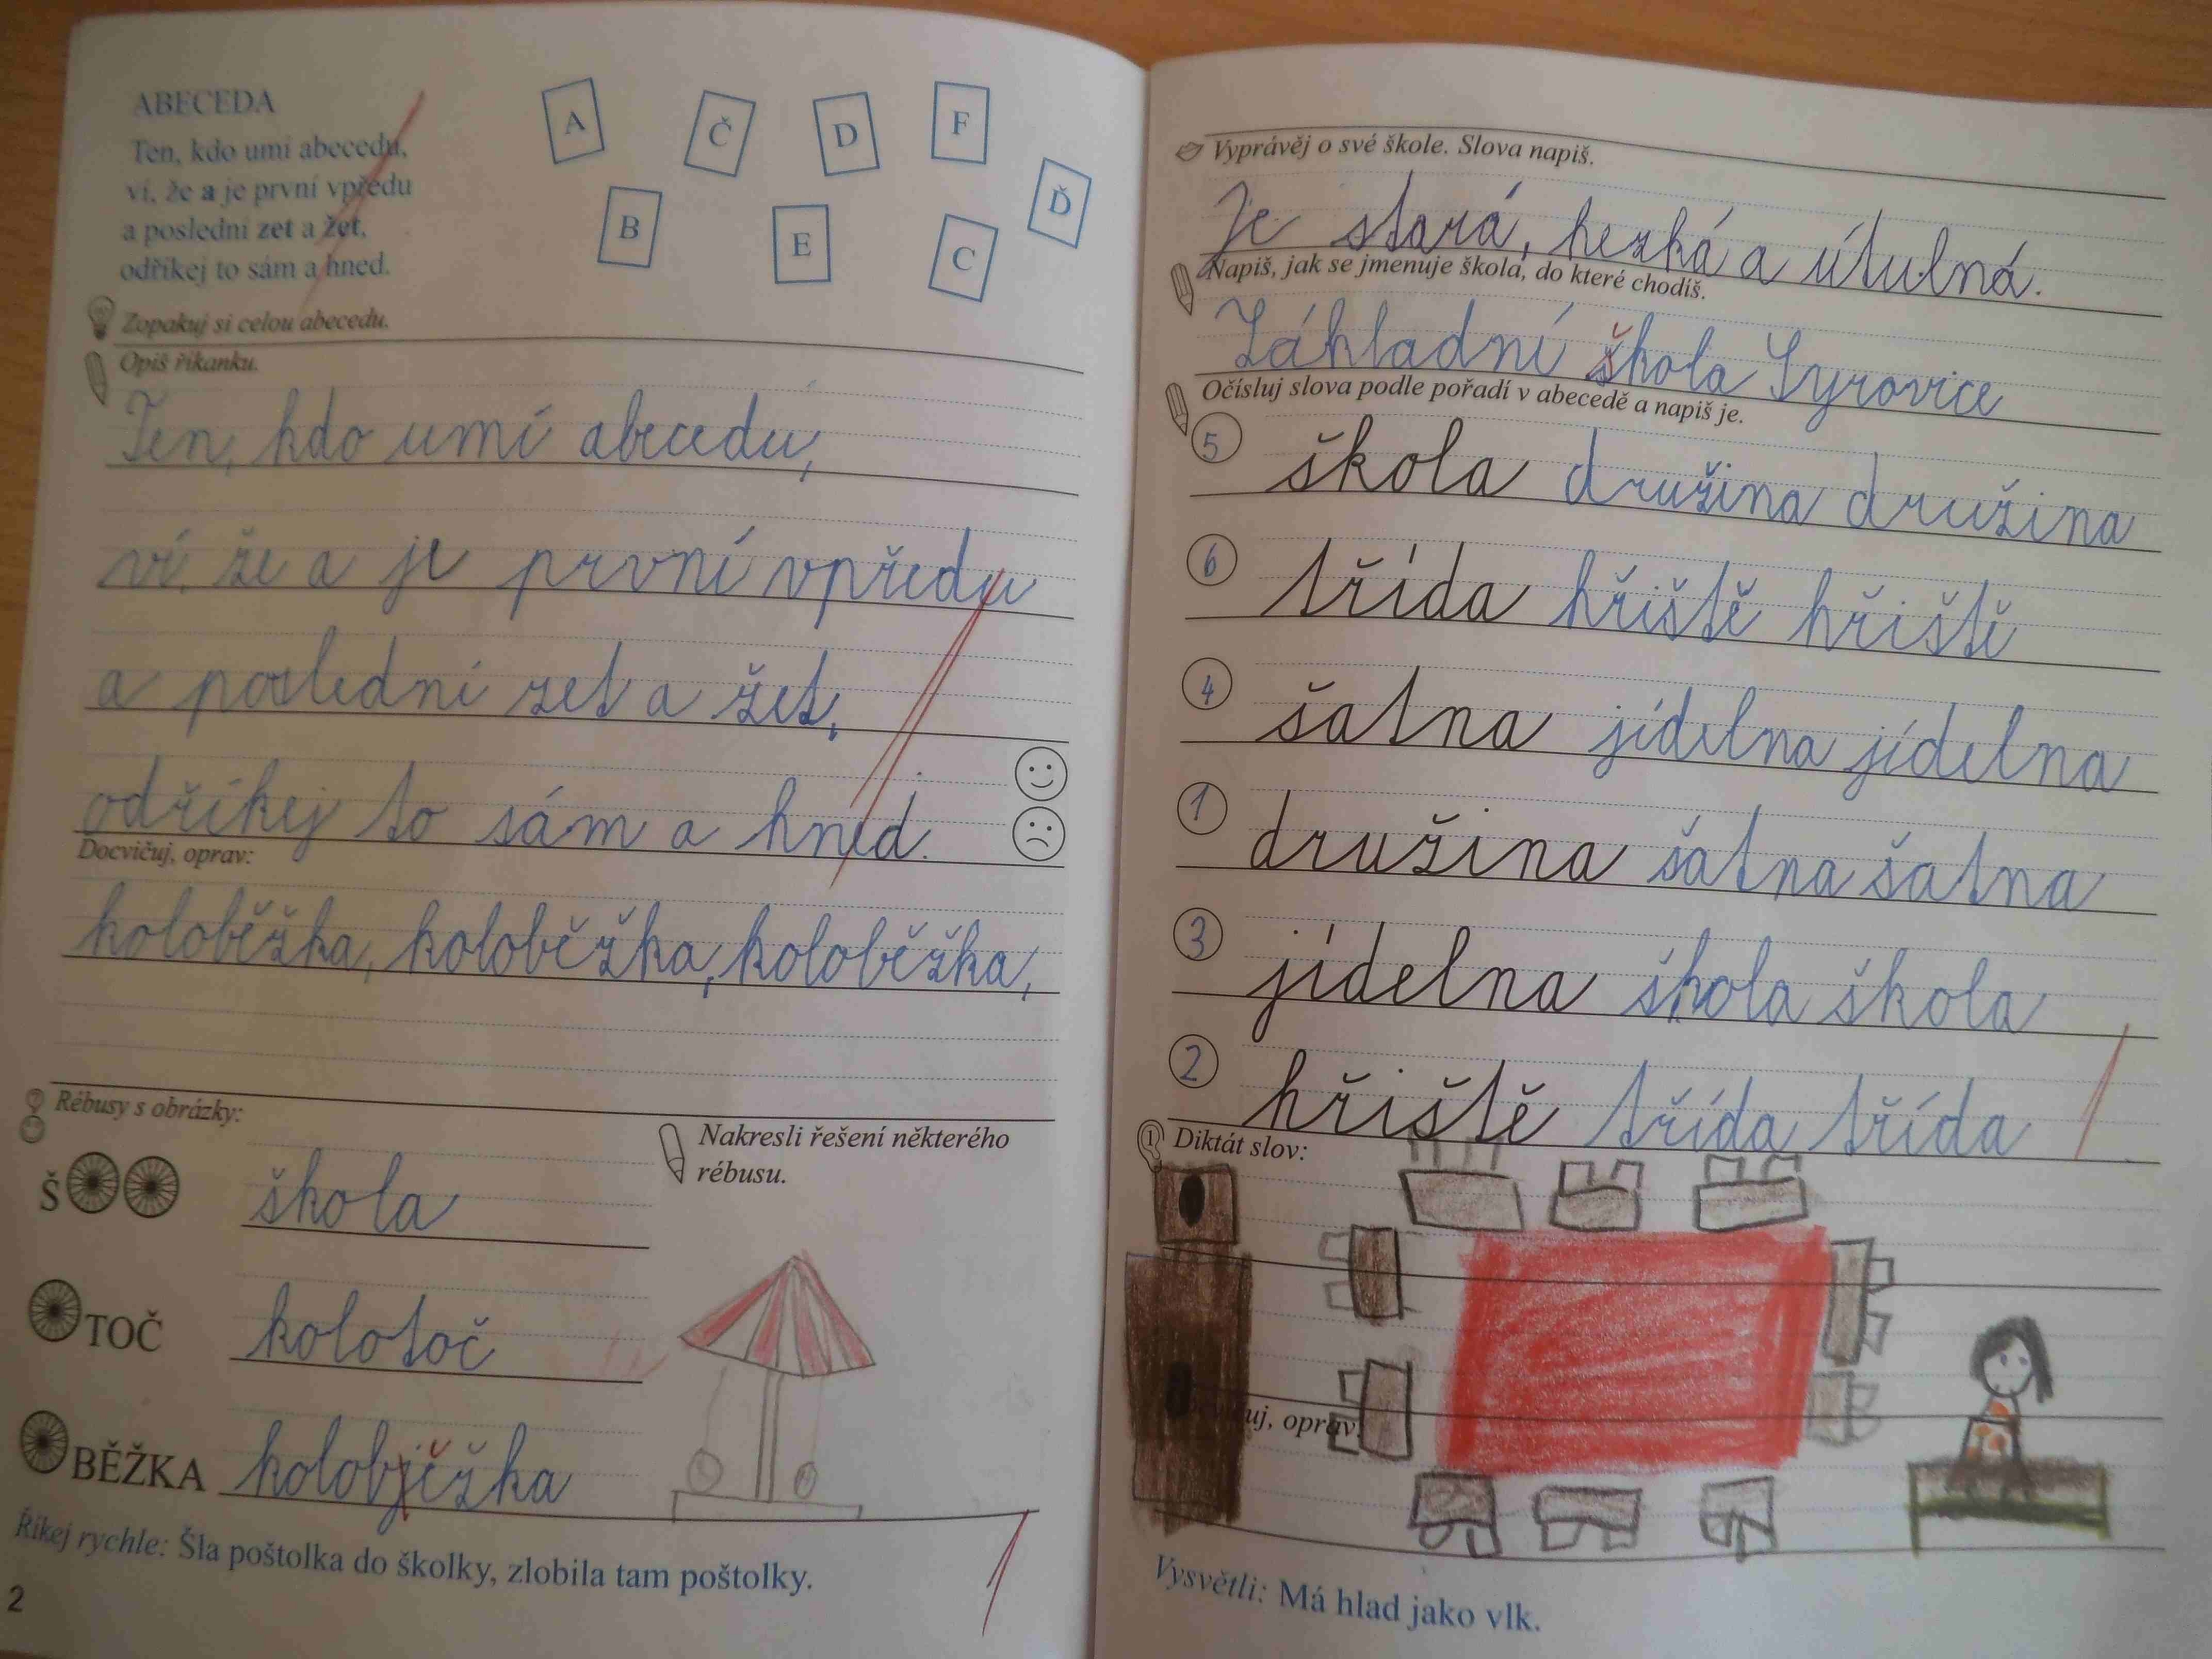 ABECEDA
Ten, kdo umí abecedu,
ví, že a je první vpředu
a poslední zet a žet,
odříkej to sám a hned.
A Č D F
B E C Ď
Zopakuj si celou abecedu.
Opiš říkanku.
Ten, kdo umí abecedu,
ví, že a je první vpředu
a poslední zet a žet,
odříkej to sám a hned.
Docvičuj, oprav:
koloběžka, koloběžka, koloběžka,
Rébusy s obrázky:
Nakresli řešení některého
rébusu.
Š
škola
TOČ
kolotoč
BĚŽKA
kolobjěžka
Říkej rychle: Šla poštolka do školky, zlobila tam poštolky.
1
2
Vyprávěj o své škole. Slova napiš.
Je stará, hezká a útulná.
Napiš, jak se jmenuje škola, do které chodíš.
Základní škola Syrovice
Očísluj slova podle pořadí v abecedě a napiš je.
5 škola družina družina
6 třída hřiště hřiště
4 šatna jídelna jídelna
1 družina šatna šatna
3 jídelna škola škola
2 hřiště třída třída
1
Diktát slov:
uj, oprav:
Vysvětli: Má hlad jako vlk.